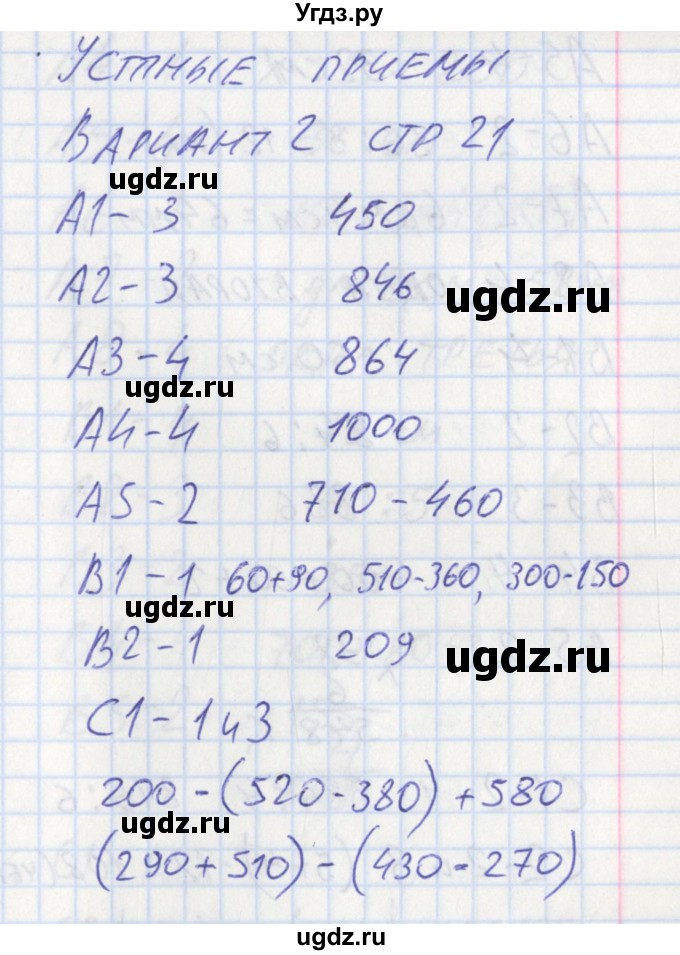 Угдз.ру
Устные приемы
Вариант 2 стр 21
ugdz.ru
А1-3 450
А2-3 846
ugdz.ru
А3-4 864
ugdz.ru
А4-4 1000
А5-2 710-460
В1-1 60+90, 510-360, 300-150
ugdz.ru
В2-1 209
ugdz.ru
С1-1и3
200-(520-380)+580
ugdz.ru
(290+510)-(430-270)
ugdz.ru